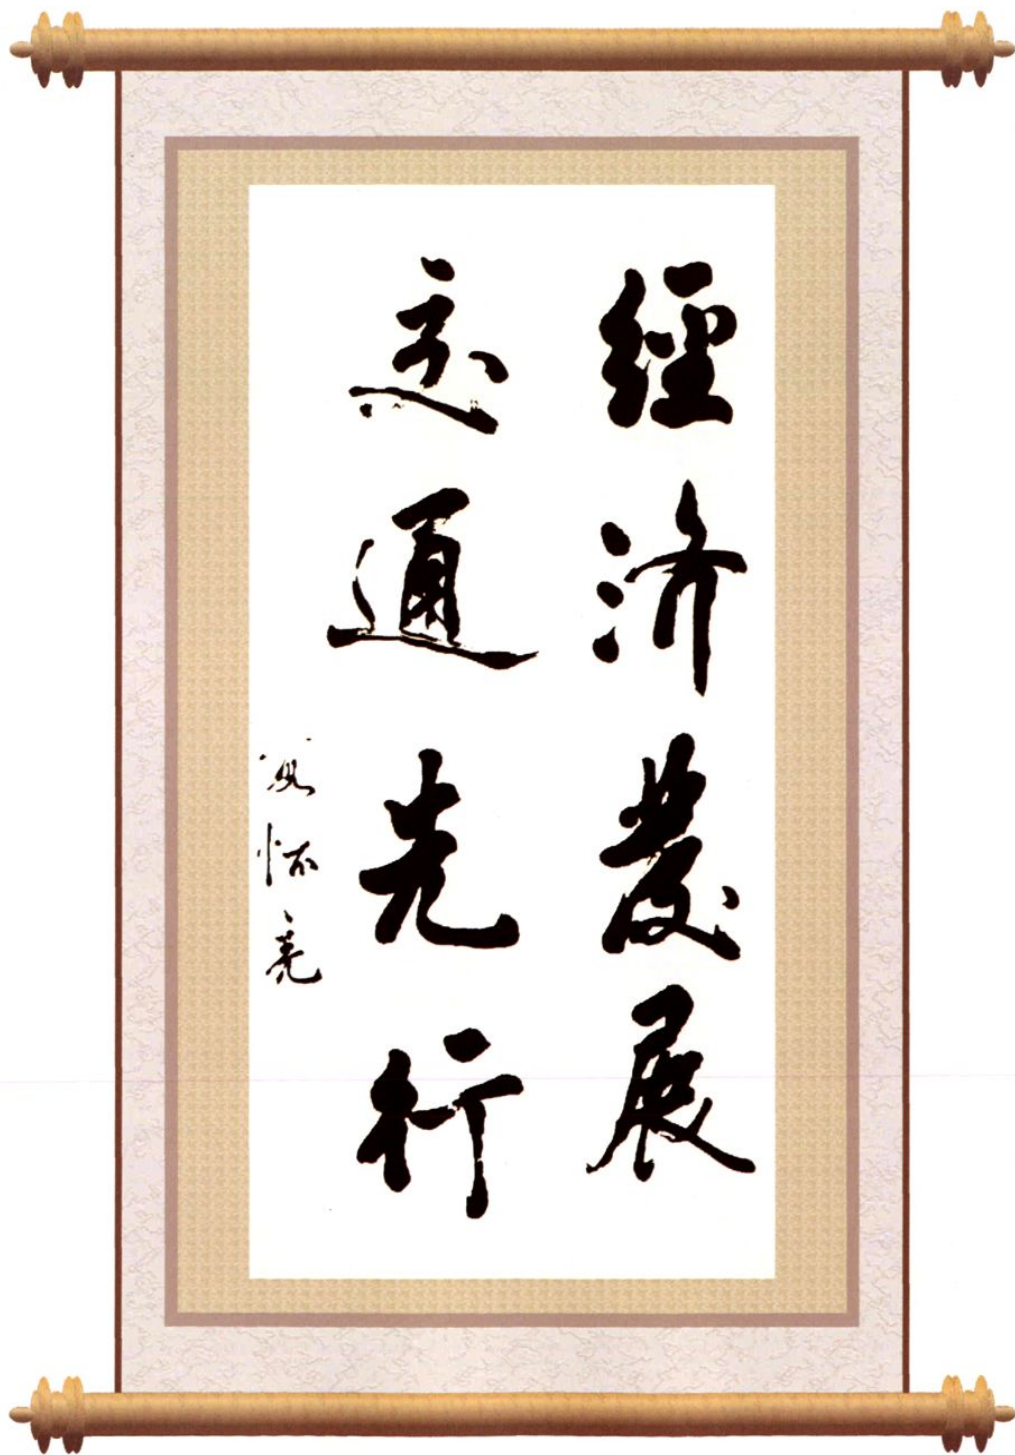 經济發展
交通先行
怀亮